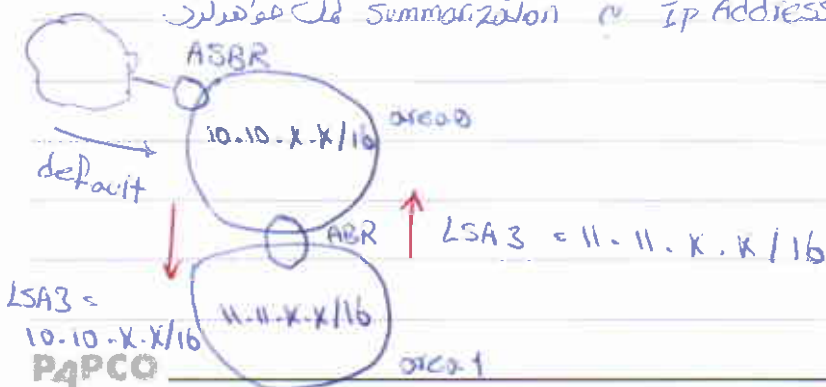 Summarization IP Address
ASBR
10.10.X.X/16
area 0
default
ABR
LSA3 = 11.11.X.X/16
LSA3 =
10.10.X.X/16
11.11.X.X/16
area 1
PAPCO